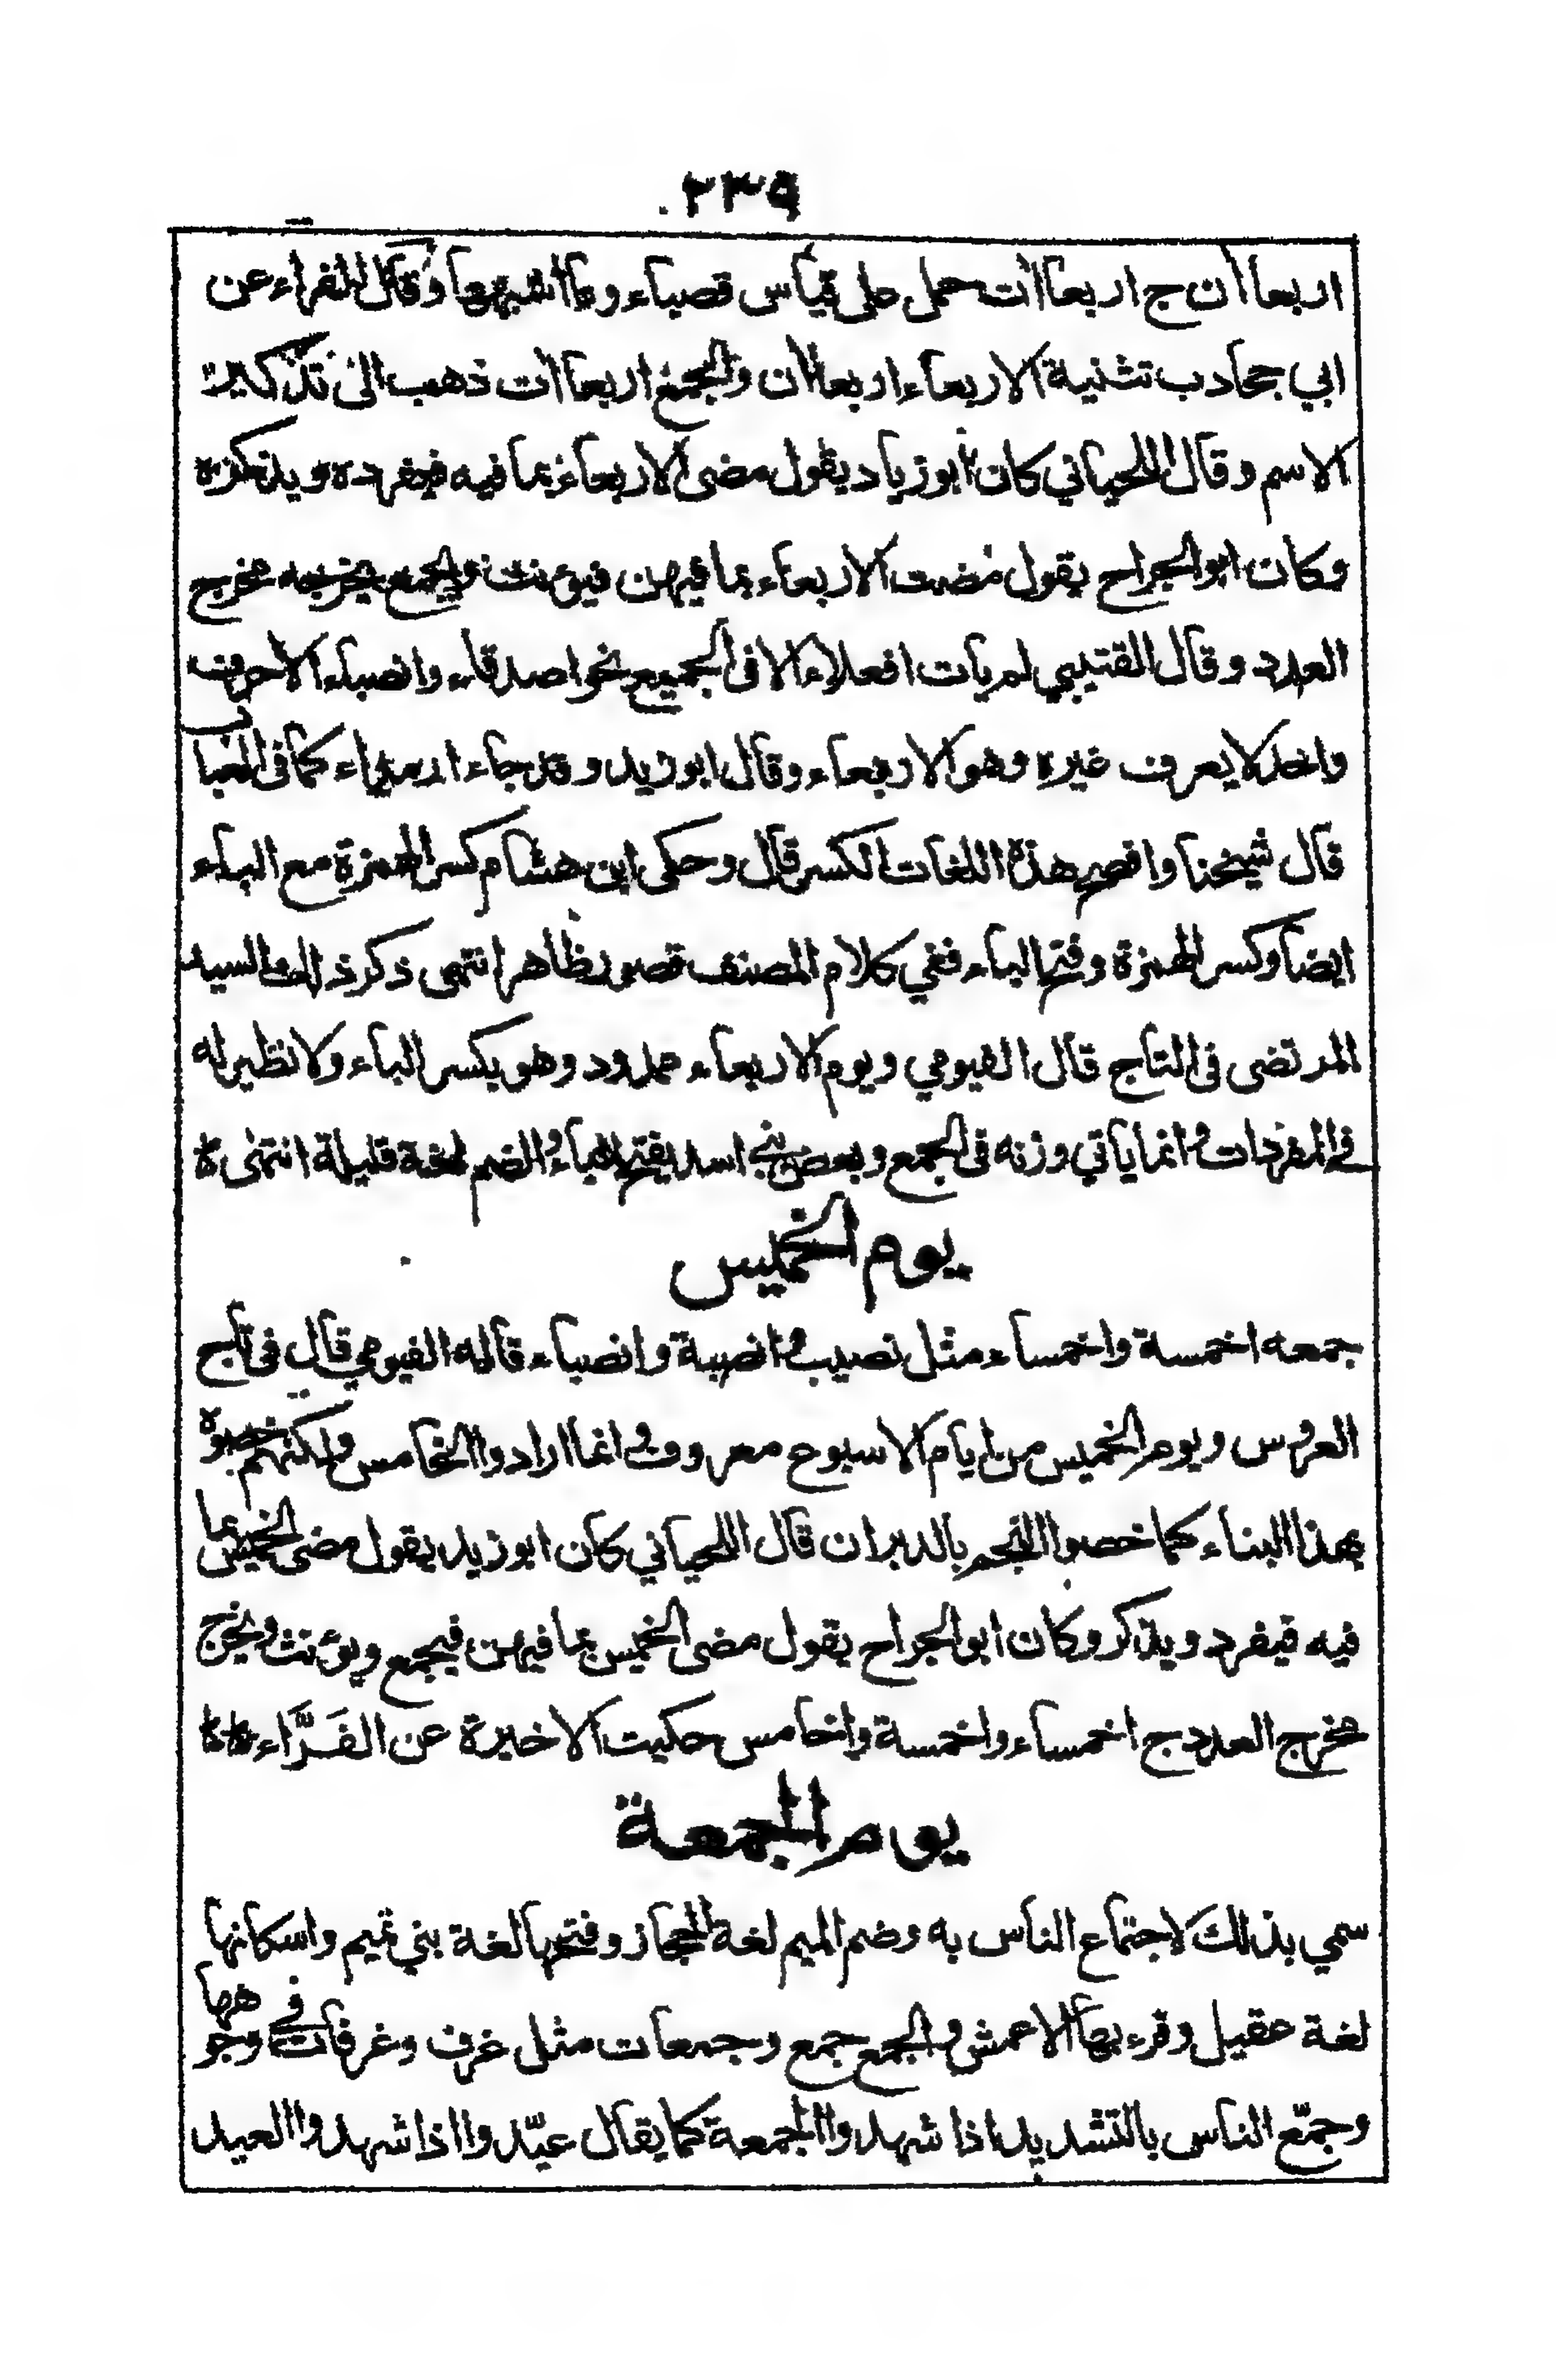 ٢٣٩
اربعاأن ج اربعاأت حمل على قياس قصباء وما اشبهها وقال الفراء عن
ابي جخادب تثنية الاربعاء اربعاأن والجمع اربعاأت ذهب الى تذكير
الاسم وقال اللحياني كان ابو زياد يقول مضى الاربعاء بما فيه فيفرده ويذكره
وكان ابو الجراح يقول مضت الاربعاء بما فيهن فيؤنث ويجمع يخرجه مخرج
العدد وقال القتيبي لم يات افعلاء الا في الجميع نحو اصدقاء وانصباء الا حرف
واحد لا يعرف غيره وهو الاربعاء وقال ابو زيد وقد جاء ارمداء كما في العباب
قال شيخنا وافصح هذه اللغات الكسر قال وحكى ابن هشام كسر الهمزة مع الباء
ايضا وكسر الهمزة وفتح الباء ففي كلام المصنف قصور ظاهر انتهى ذكر ذلك السيد
المرتضى في التاج قال الفيومي ويوم الاربعاء ممدود وهو بكسر الباء ولا نظير له
في المفردات وانما ياتي وزنه في الجمع وبعض بني اسد يفتح الباء والضم لغة قليلة انتهى ه
يوم الخميس
جمعه اخمسة واخمساء مثل نصيب وانصبة وانصباء قاله الفيومي قال في تاج
العروس ويوم الخميس من ايام الاسبوع معروف وانما ارادوا الخامس ولكنهم خصوه
بهذا البناء كما خصوا النجم بالدبران قال اللحياني كان ابو زيد يقول مضى الخميس بما
فيه فيفرد ويذكر وكان ابو الجراح يقول مضى الخميس بما فيهن فيجمع ويؤنث ويخرج
مخرج العدد ج اخمساء واخمسة واخامس حكيت الاخيرة عن الفَرَّاء ه ه
يوم الجمعة
سمي بذلك لاجتماع الناس به وضم الميم لغة الحجاز وفتحها لغة بني تميم واسكانها
لغة عقيل وقرء بها الاعمش والجمع جمع وجمعات مثل غرف وغرفات في وجوهها
وجمّع الناس بالتشديد اذا شهدوا الجمعة كما يقال عيّدوا اذا شهدوا العيد